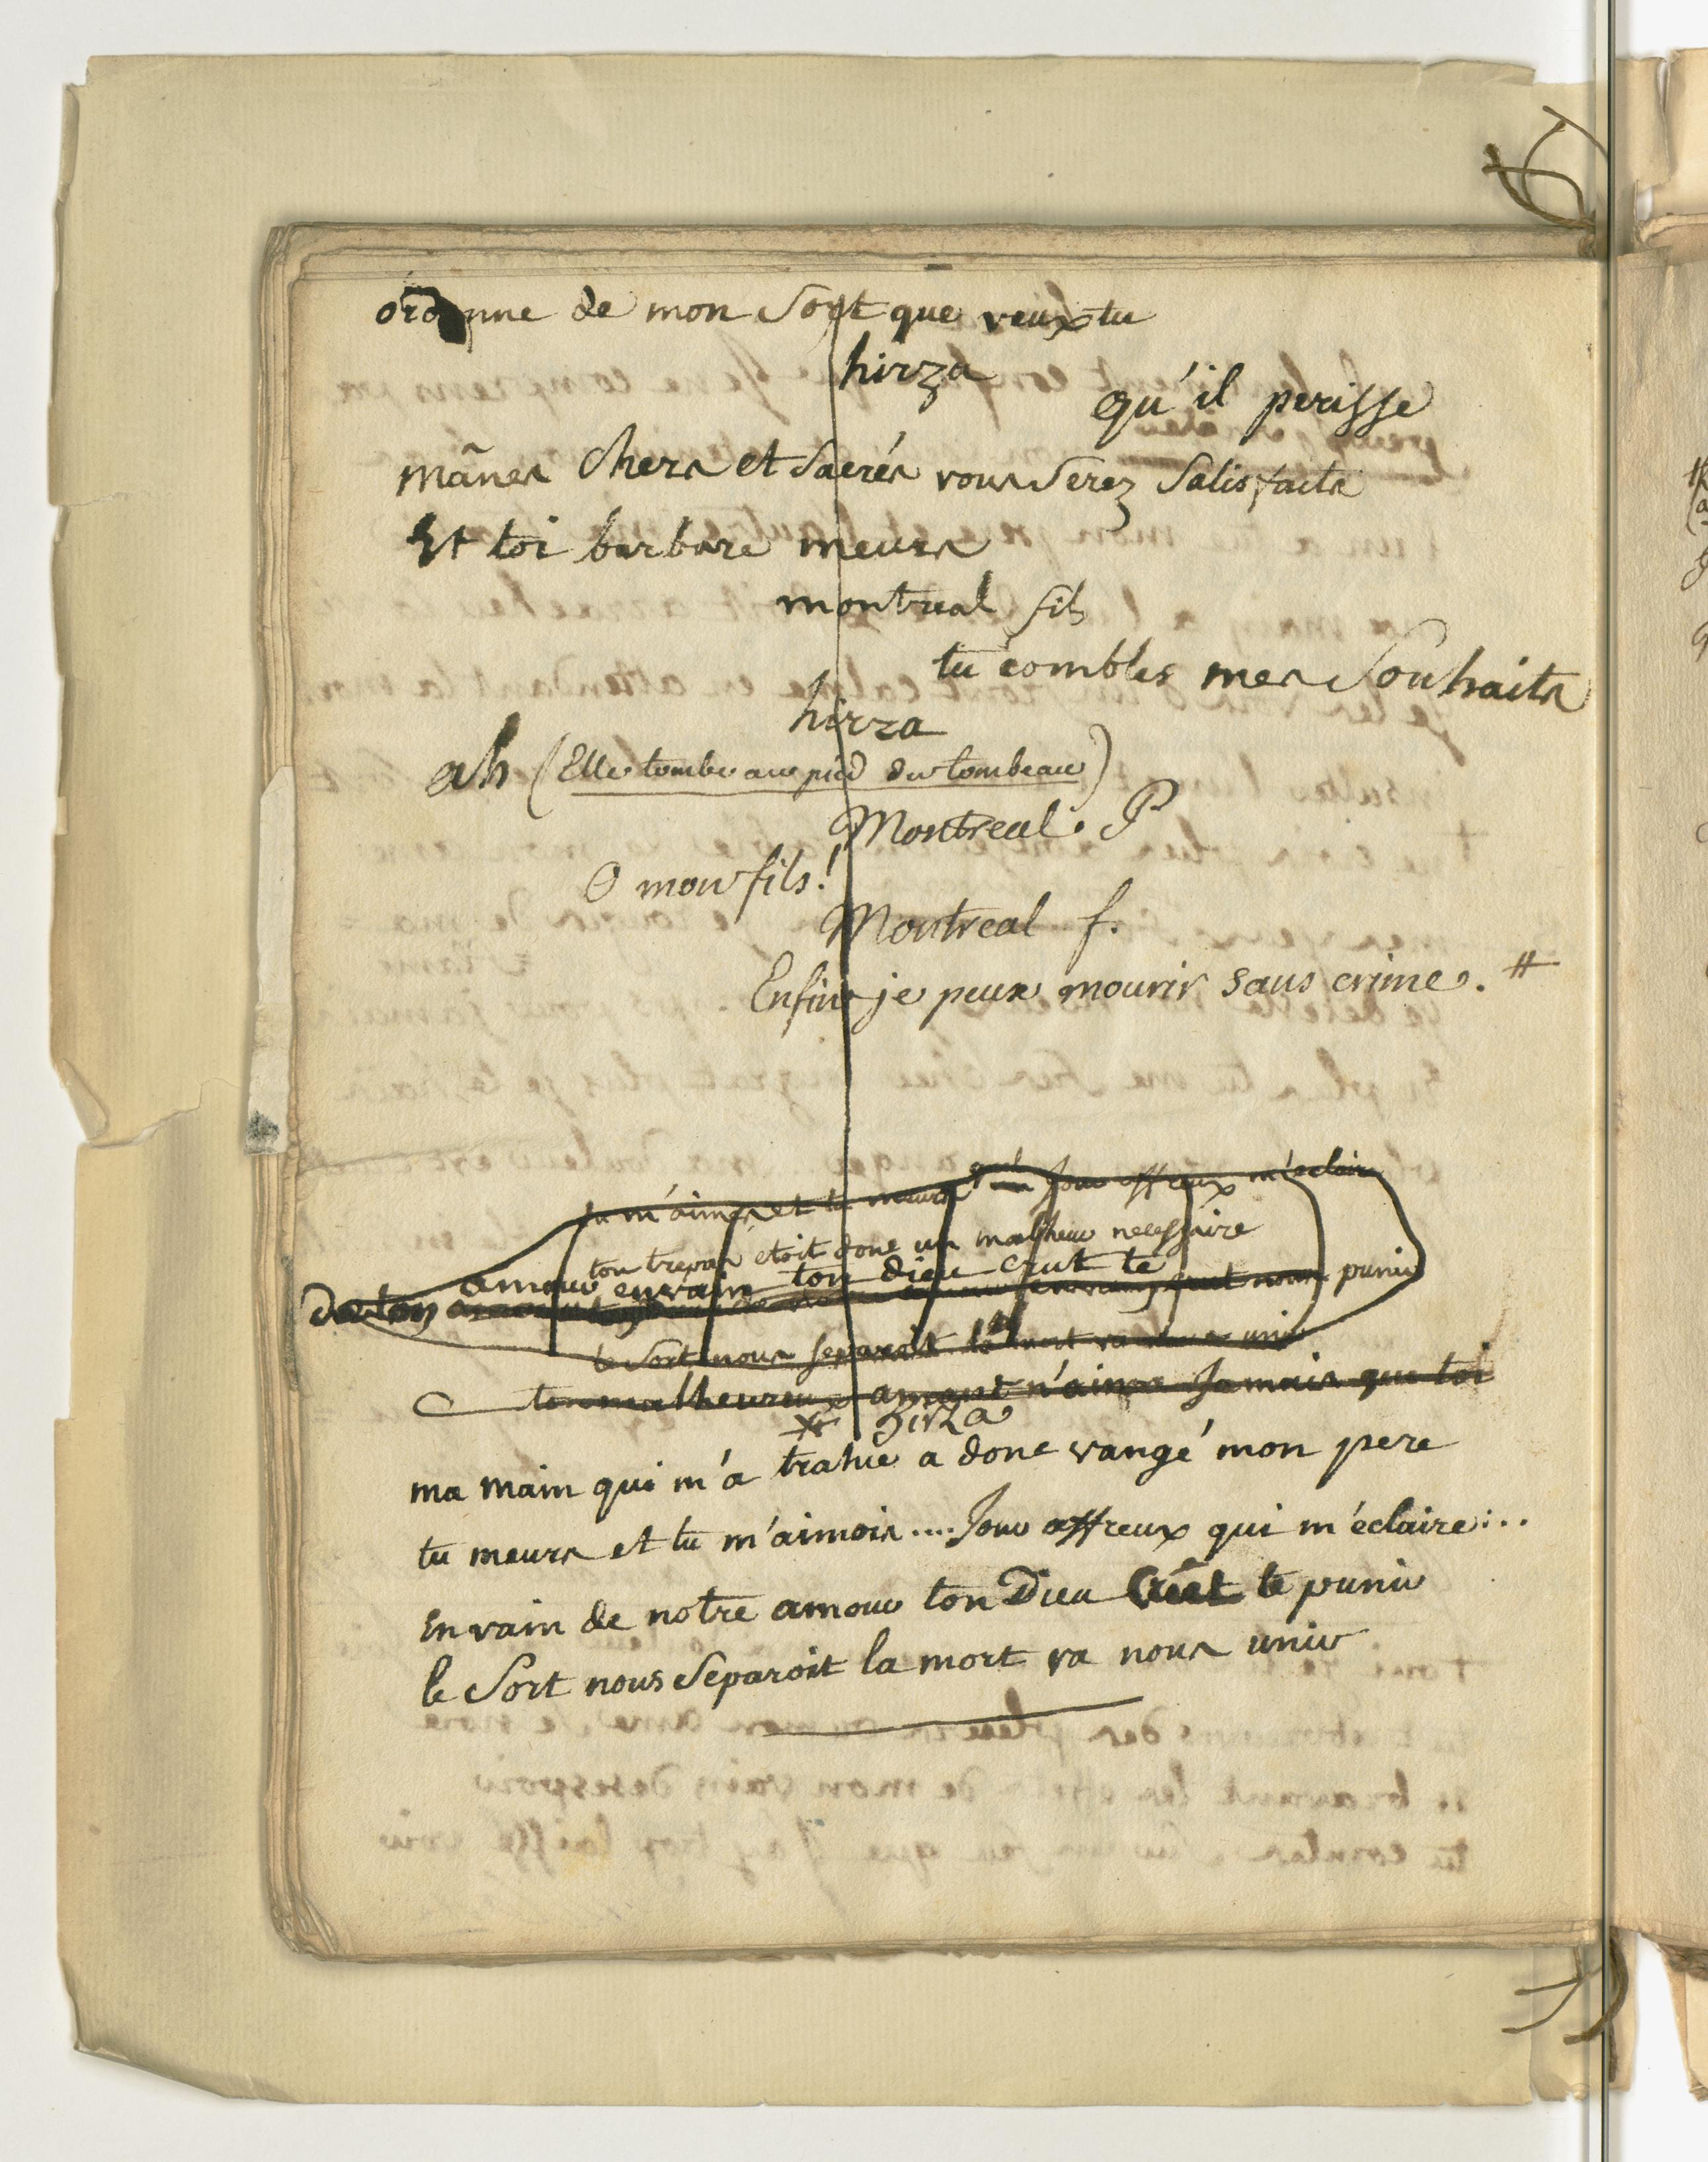 ordonne de mon Sort que veux tu
hirza
qu'il perisse
mânes chers et Sacrés vous Serez Satisfaits
Et toi barbare meurs
montreal fils
tu combles mes Souhaits
hirza
ah (Elle tombe au pied du tombeau)
Montreal. P
O mon fils!
Montreal f.
Enfin je peux mourir sans crime. #
tu m'aimes et tu meurs quel Jour affreux m'eclaire
ton trepas etoit donc un malheur necessaire
amour en vain ton dieu crut te
de ton punir
le Sort nous separoit la mort va nous unir
ton malheureux amant n'aima Jamais que toi
hirza
ma main qui m'a trahie a donc vangé mon pere
tu meurs et tu m'aimois.... Jour affreux qui m'eclaire...
En vain de notre amour ton Dieu Crut te punir
le Sort nous Separoit la mort va nous unir